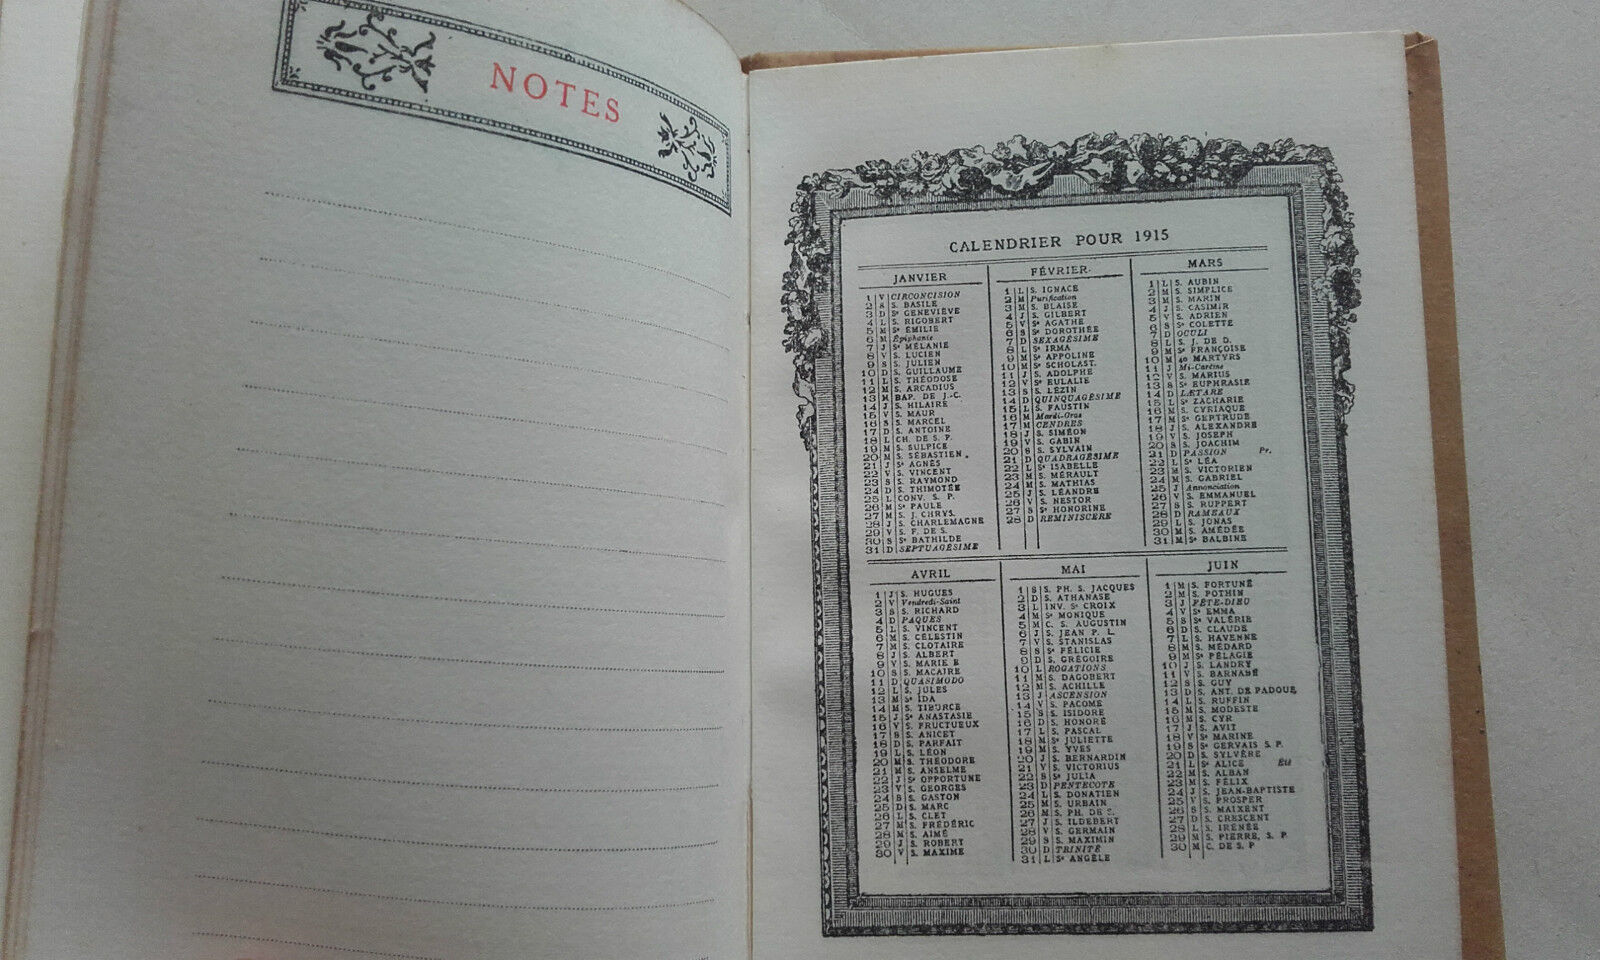 NOTES
CALENDRIER POUR 1915
JANVIER
1 V CIRCONCISION
2 S S. BASILE
3 D Se GENEVIÈVE
4 L S. RIGOBERT
5 M Se ÉMILIE
6 M Épiphanie
7 J Se MÉLANIE
8 V S. LUCIEN
9 S S. JULIEN
10 D S. GUILLAUME
11 L S. THÉODOSE
12 M S. ARCADIUS
13 M BAP. DE J.-C.
14 J S. HILAIRE
15 V S. MAUR
16 S S. MARCEL
17 D S. ANTOINE
18 L CH. DE S. P.
19 M S. SULPICE
20 M S. SÉBASTIEN.
21 J Se AGNÈS
22 V S. VINCENT
23 S S. RAYMOND
24 D S. THIMOTÉE
25 L CONV. S. P.
26 M Se PAULE
27 M S. J. CHRYS.
28 J S. CHARLEMAGNE
29 V S. F. DE S.
30 S Se BATHILDE
31 D SEPTUAGÉSIME
FÉVRIER
1 L S. IGNACE
2 M Purification
3 M S. BLAISE
4 J S. GILBERT
5 V Se AGATHE
6 S Se DOROTHÉE
7 D SEXAGÉSIME
8 L Se IRMA
9 M Se APPOLINE
10 M Se SCHOLAST.
11 J S. ADOLPHE
12 V Se EULALIE
13 S S. LÉZIN
14 D QUINQUAGÉSIME
15 L S. FAUSTIN
16 M Mardi-Gras
17 M CENDRES
18 J S. SIMÉON
19 V S. GABIN
20 S S. SYLVAIN
21 D QUADRAGÉSIME
22 L Se ISABELLE
23 M S. MÉRAULT
24 M S. MATHIAS
25 J S. LÉANDRE
26 V S. NESTOR
27 S Se HONORINE
28 D REMINISCERE
MARS
1 L S. AUBIN
2 M S. SIMPLICE
3 M S. MARIN
4 J S. CASIMIR
5 V S. ADRIEN
6 S Se COLETTE
7 D OCULI
8 L S. J. DE D.
9 M Se FRANÇOISE
10 M 40 MARTYRS
11 J Mi-Carême
12 V S. MARIUS
13 S Se EUPHRASIE
14 D LÆTARE
15 L Se ZACHARIE
16 M S. CYRIAQUE
17 M Se GERTRUDE
18 J S. ALEXANDRE
19 V S. JOSEPH
20 S S. JOACHIM
21 D PASSION Pr.
22 L Se LÉA
23 M S. VICTORIEN
24 M S. GABRIEL
25 J Annonciation
26 V S. EMMANUEL
27 S S. RUPPERT
28 D RAMEAUX
29 L S. JONAS
30 M S. AMÉDÉE
31 M Se BALBINE
AVRIL
1 J S. HUGUES
2 V Vendredi-Saint
3 S S. RICHARD
4 D PAQUES
5 L S. VINCENT
6 M S. CÉLESTIN
7 M S. CLOTAIRE
8 J S. ALBERT
9 V S. MARIE E
10 S S. MACAIRE
11 D QUASIMODO
12 L S. JULES
13 M Se IDA
14 M S. TIBURCE
15 J Se ANASTASIE
16 V S. FRUCTUEUX
17 S S. ANICET
18 D S. PARFAIT
19 L S. LÉON
20 M S. THÉODORE
21 M S. ANSELME
22 J Se OPPORTUNE
23 V S. GEORGES
24 S S. GASTON
25 D S. MARC
26 L S. CLET
27 M S. FRÉDÉRIC
28 M S. AIMÉ
29 J S. ROBERT
30 V S. MAXIME
MAI
1 S S. PH. S. JACQUES
2 D S. ATHANASE
3 L INV. Se CROIX
4 M Se MONIQUE
5 M C. S. AUGUSTIN
6 J S. JEAN P. L.
7 V S. STANISLAS
8 S Se FÉLICIE
9 D S. GRÉGOIRE
10 L ROGATIONS
11 M S. DAGOBERT
12 M S. ACHILLE
13 J ASCENSION
14 V S. PACOME
15 S S. ISIDORE
16 D S. HONORÉ
17 L S. PASCAL
18 M Se JULIETTE
19 M S. YVES
20 J S. BERNARDIN
21 V S. VICTORIUS
22 S Se JULIA
23 D PENTECOTE
24 L S. DONATIEN
25 M S. URBAIN
26 M S. PH. DE S.
27 J S. ILDEBERT
28 V S. GERMAIN
29 S S. MAXIMIN
30 D TRINITÉ
31 L Se ANGÈLE
JUIN
1 M S. FORTUNÉ
2 M S. POTHIN
3 J FÊTE-DIEU
4 V Se EMMA
5 S Se VALÉRIE
6 D S. CLAUDE
7 L S. HAVENNE
8 M S. MÉDARD
9 M Se PÉLAGIE
10 J S. LANDRY
11 V S. BARNABÉ
12 S S. GUY
13 D S. ANT. DE PADOUE
14 L S. RUFFIN
15 M S. MODESTE
16 M S. CYR
17 J S. AVIT
18 V Se MARINE
19 S Se GERVAIS S. P.
20 D S. SYLVÈRE
21 L Se ALICE Été
22 M S. ALBAN
23 M S. FÉLIX
24 J S. JEAN-BAPTISTE
25 V S. PROSPER
26 S S. MAIXENT
27 D S. CRESCENT
28 L S. IRÉNÉE
29 M S. PIERRE, S. P.
30 M C. DE S. P